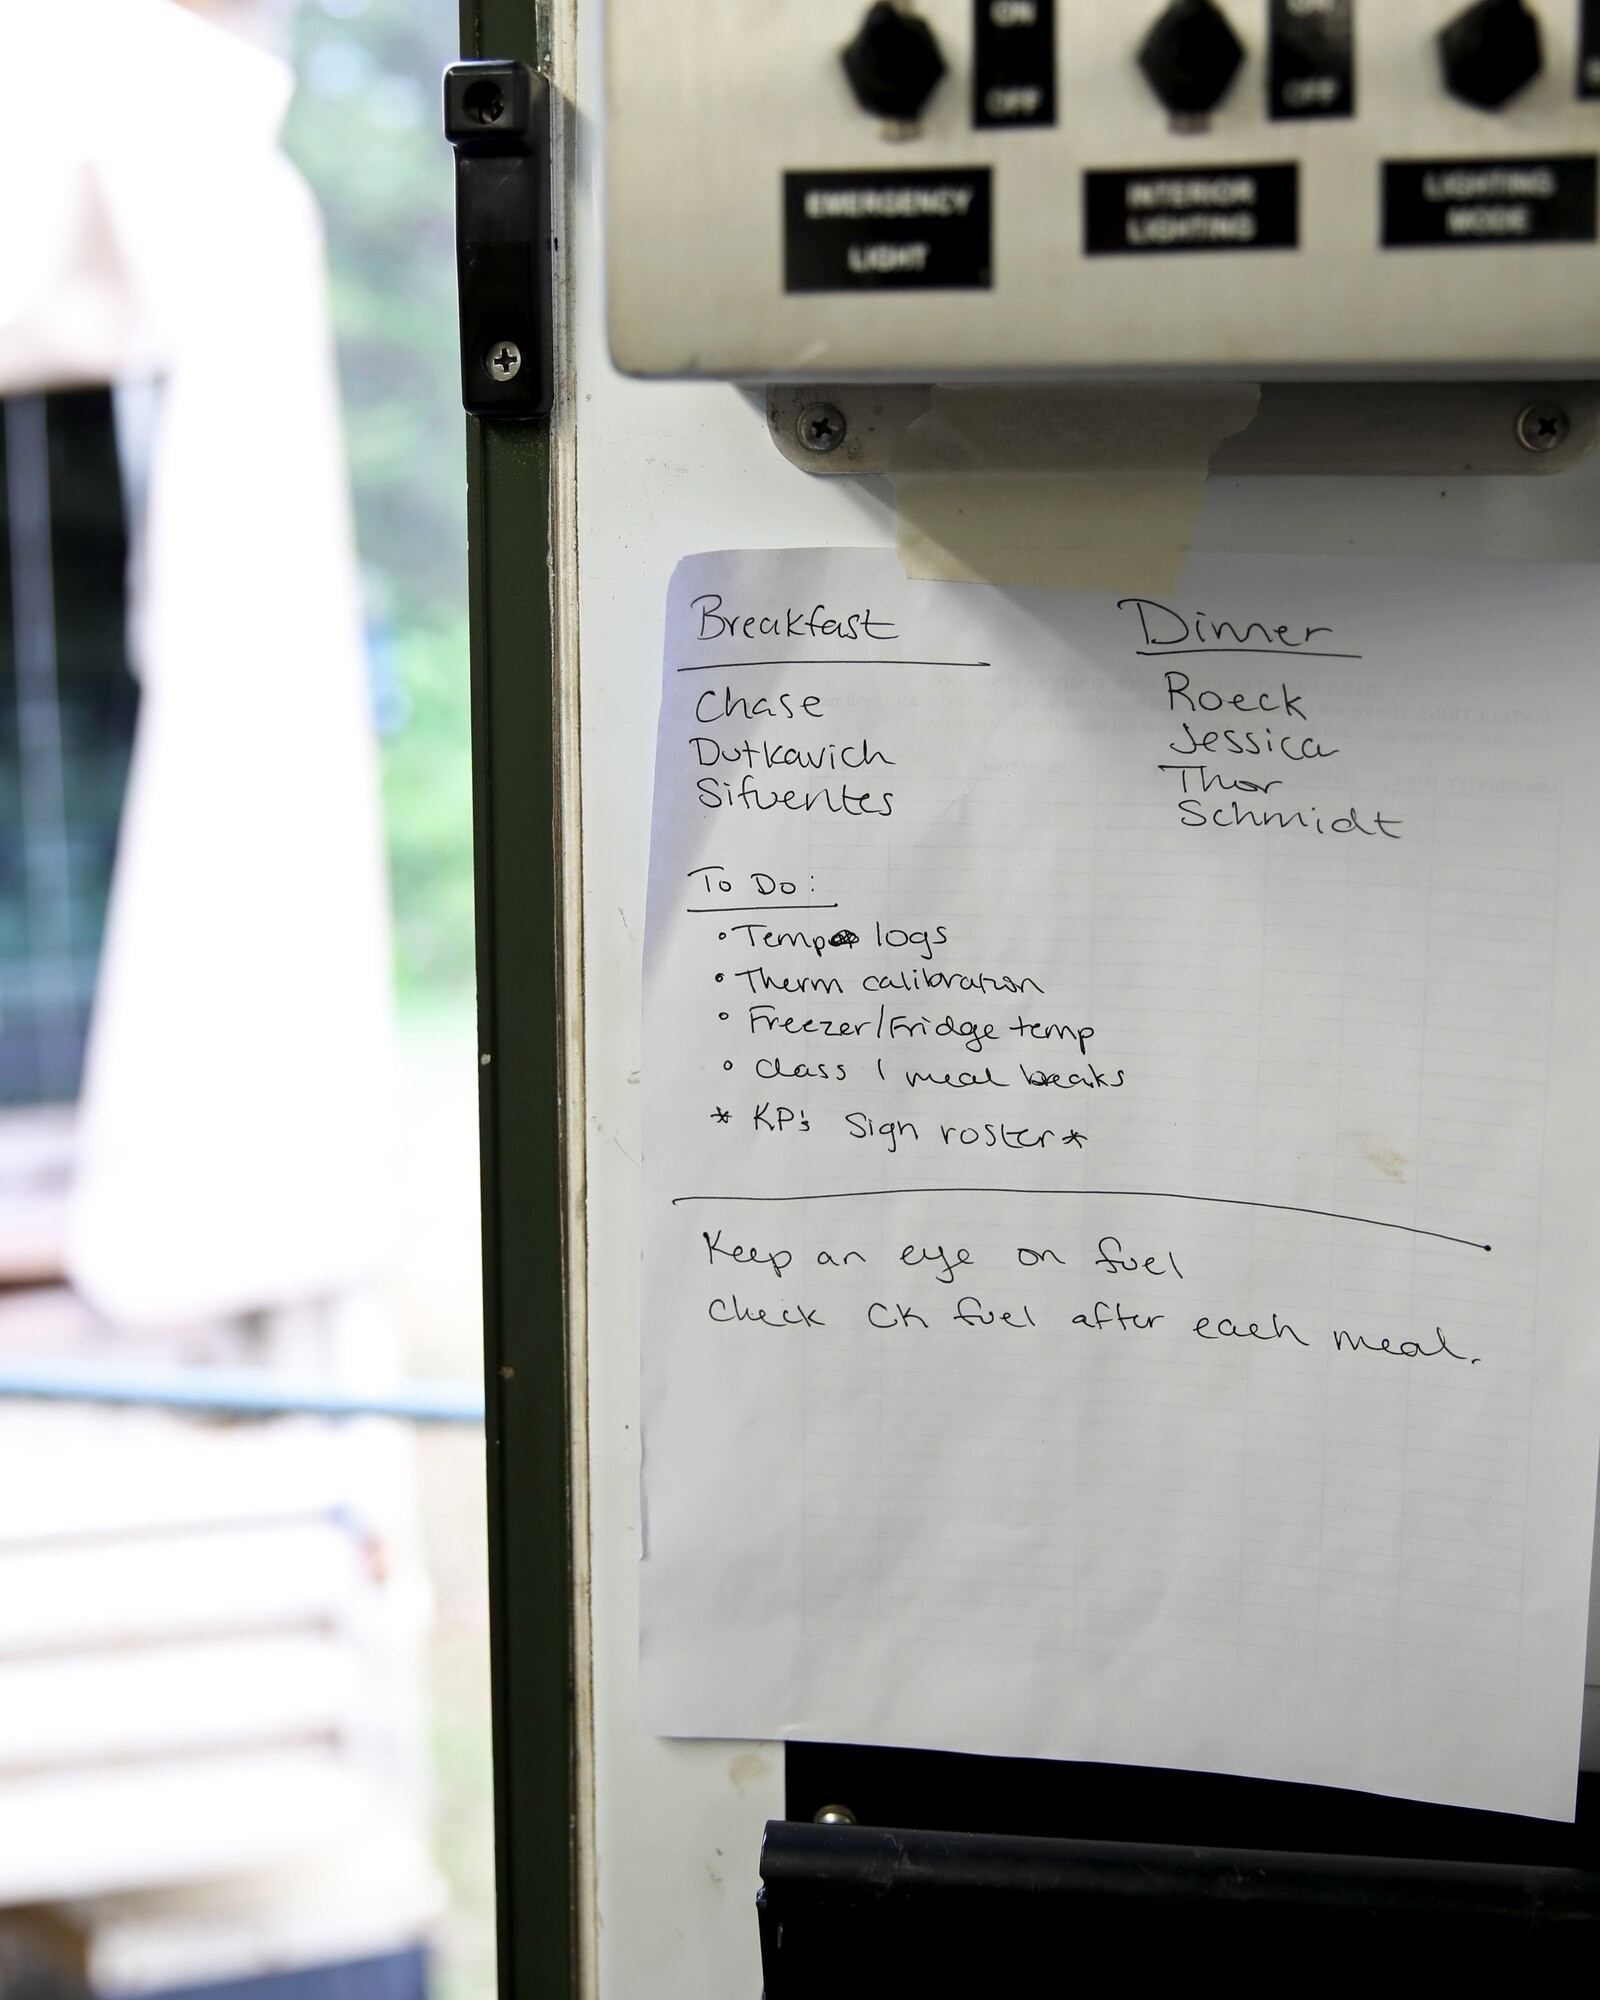 ON
OFF
ON
OFF
EMERGENCY
LIGHT
INTERIOR
LIGHTING
LIGHTING
MODE
Breakfast
Chase
Dutkavich
Sifuentes
Dinner
Roeck
Jessica
Thor
Schmidt
To Do:
• Temp logs
• Therm calibration
• Freezer/Fridge temp
• Class 1 meal breaks
* KP's Sign roster *
Keep an eye on fuel
Check CK fuel after each meal.